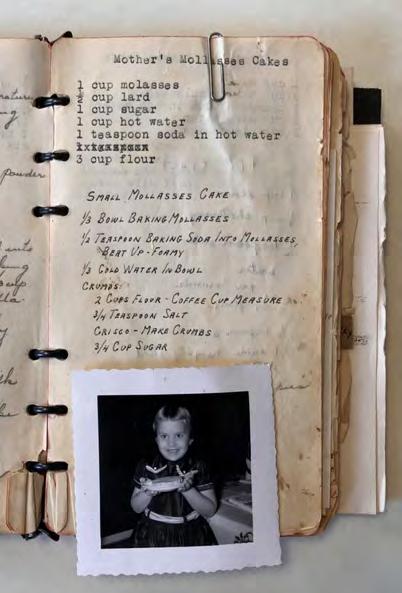 Mother's Mollasses Cakes
1 cup molasses
½ cup lard
1 cup sugar
1 cup hot water
1 teaspoon soda in hot water
3 cup flour
SMALL MOLLASSES CAKE
⅓ BOWL BAKING MOLLASSES
½ TEASPOON BAKING SODA INTO MOLLASSES,
BEAT UP - FOAMY
⅓ COLD WATER IN BOWL
CRUMBS:
2 CUPS FLOUR - COFFEE CUP MEASURE
¾ TEASPOON SALT
CRISCO - MAKE CRUMBS
¾ CUP SUGAR
powder